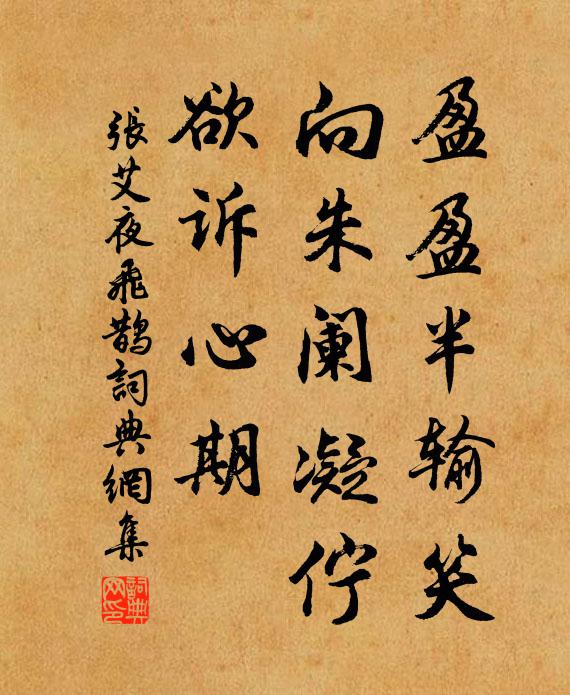 盈盈半输笑
向朱阑凝伫
欲诉心期
張艾夜飛鵲詞典網集
詞典网印